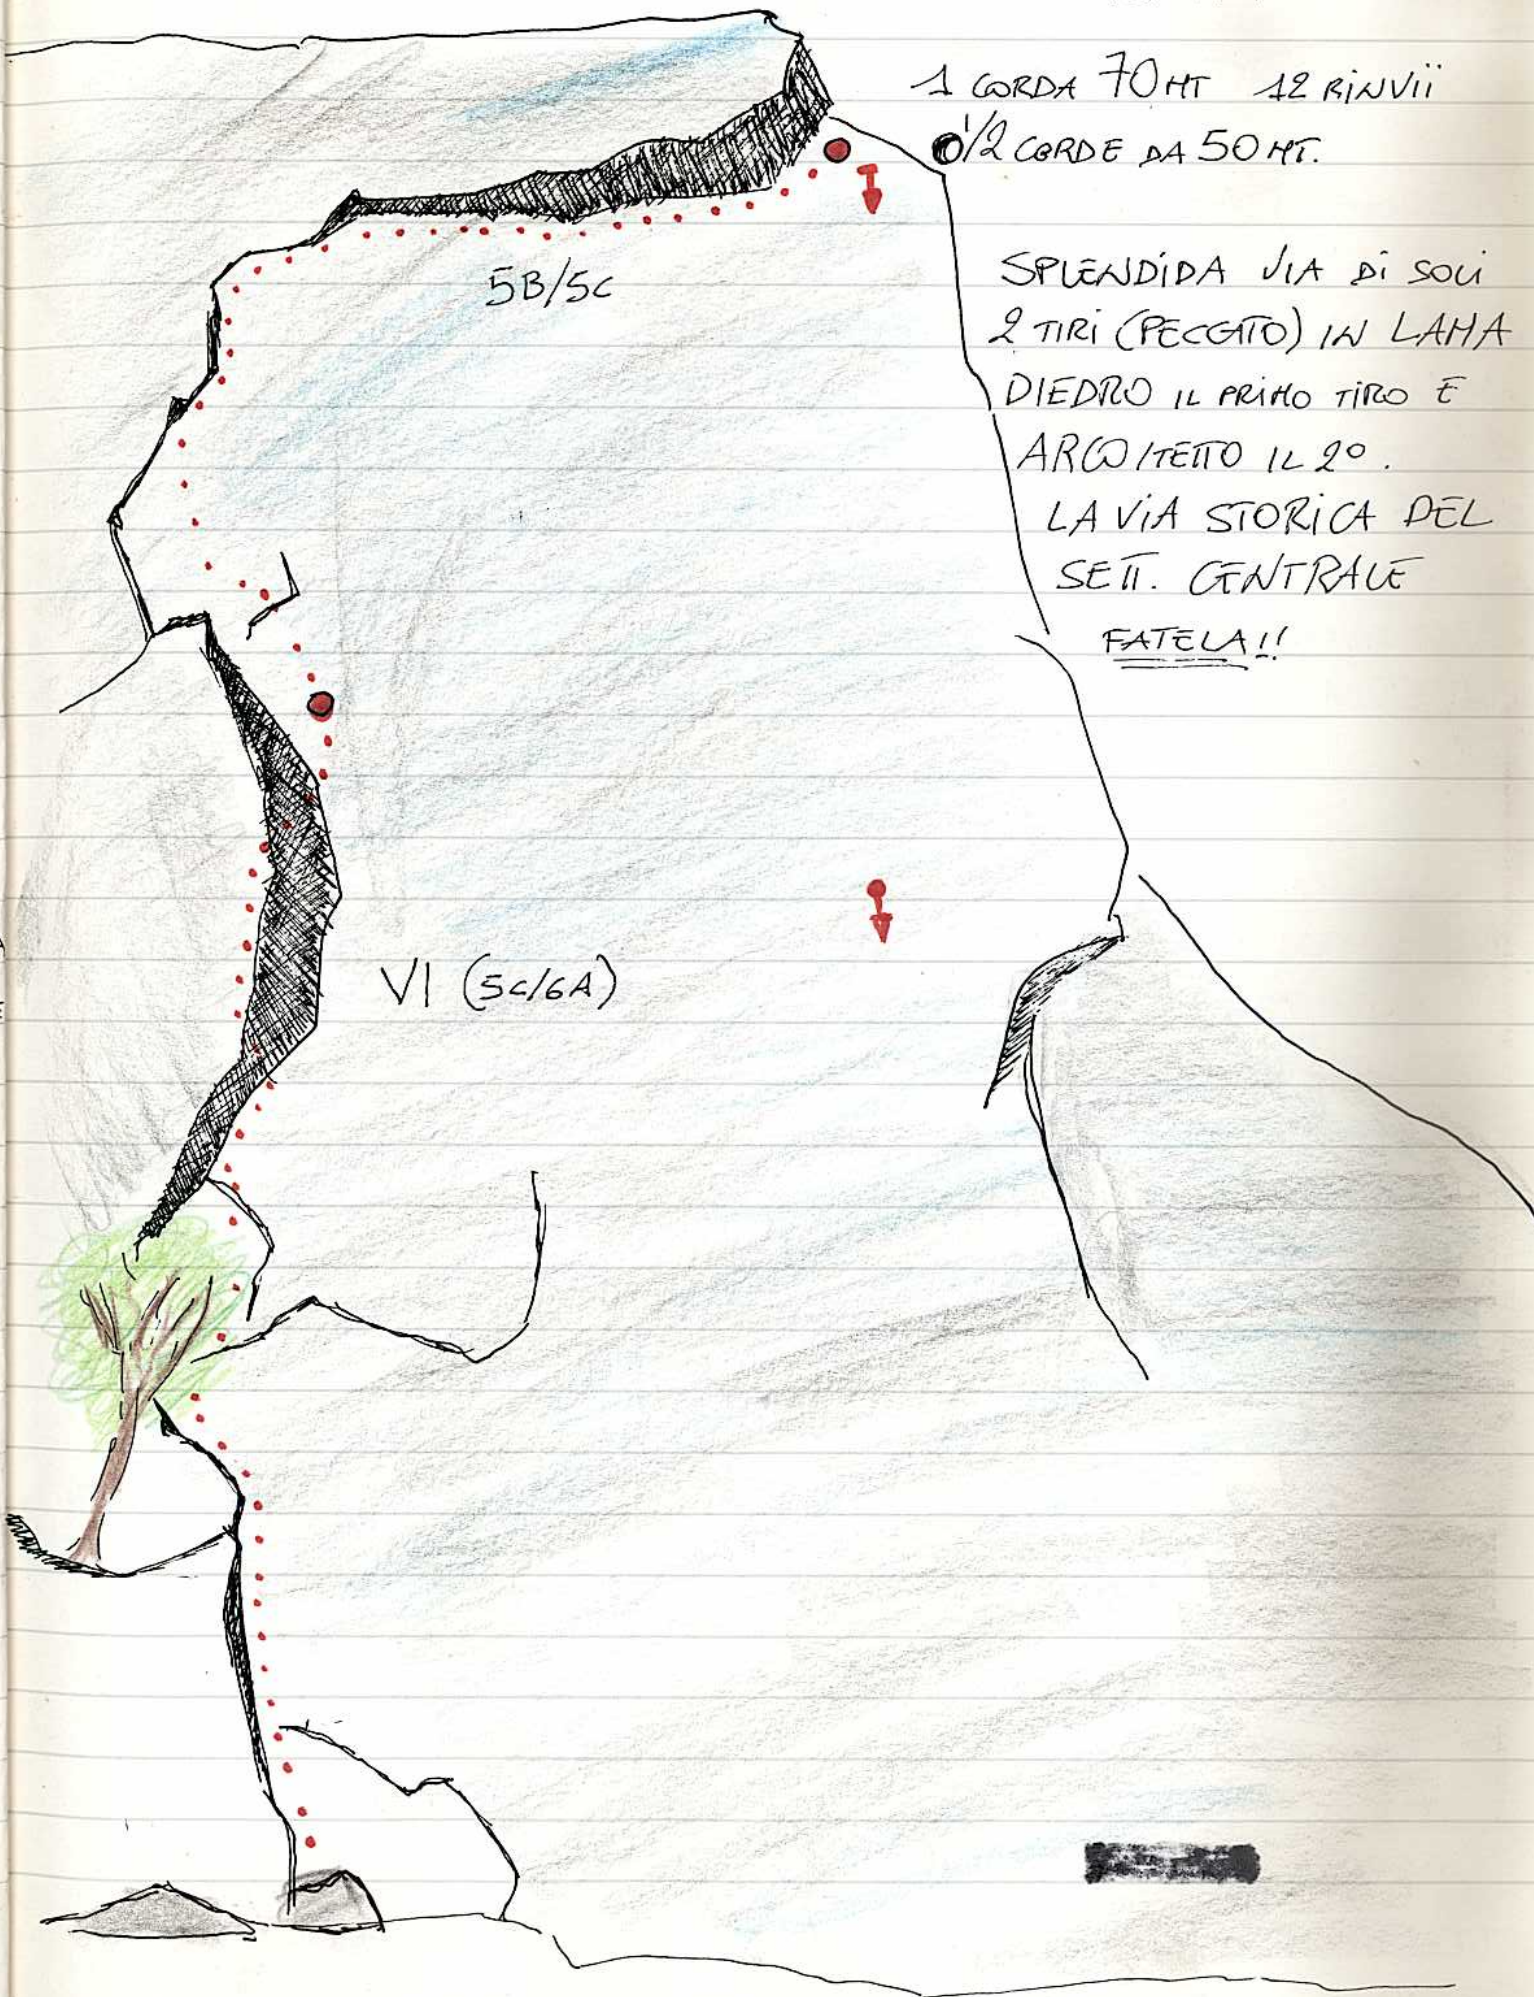 1 CORDA 70 MT 12 RINVII
O 1/2 CORDE DA 50 MT.
5B/5C
SPLENDIDA VIA DI SOLI
2 TIRI (PECCATO) IN LAMA
DIEDRO IL PRIMO TIRO E
ARCO/TETTO IL 2°.
LA VIA STORICA DEL
SETT. CENTRALE
FATELA!!
VI (5C/6A)